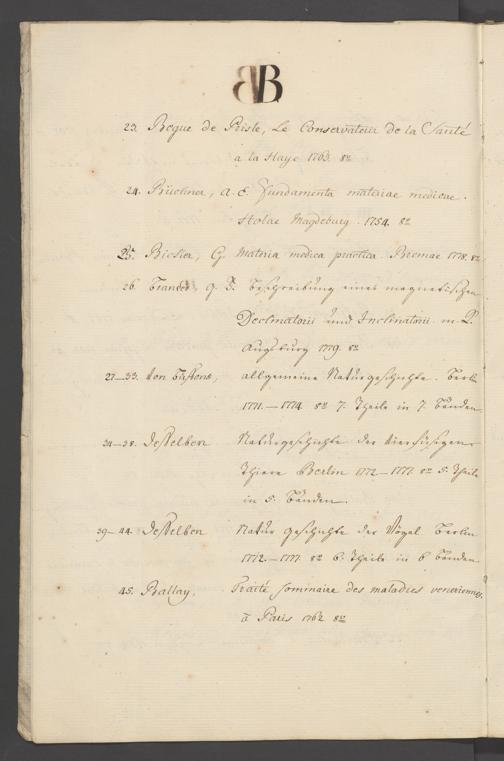 BB
23. Begue de Priste, Le Conservateur de la Santé
a la Haye 1763. 8º
24. Büchner, A. E. Fundamenta materiae medicae.
Halae Magdeburg. 1754. 8º
25. G. Materia medica practica. Bremae 1778. 8º
26. Brander, G. F. Beschreibung eines magnetischen
Declinatorii und Inclinatorii m. K.
Augsburg 1779. 8º
27–33. von Büffons, allgemeine Naturgeschichte. Berlin
1771.–1774. 8º 7. Theile in 7. Bänden.
34–38. Desselben Naturgeschichte der vierfüßigen
Thiere Berlin 1772–1777. 8º 5. Theile
in 5. Bänden.
39–44. Desselben Naturgeschichte der Vögel Berlin
1772.–1777. 8º 6. Theile in 6 Bänden
45. Ballay, Traité sommaire des maladies veneriennes,
à Paris 1762 8º